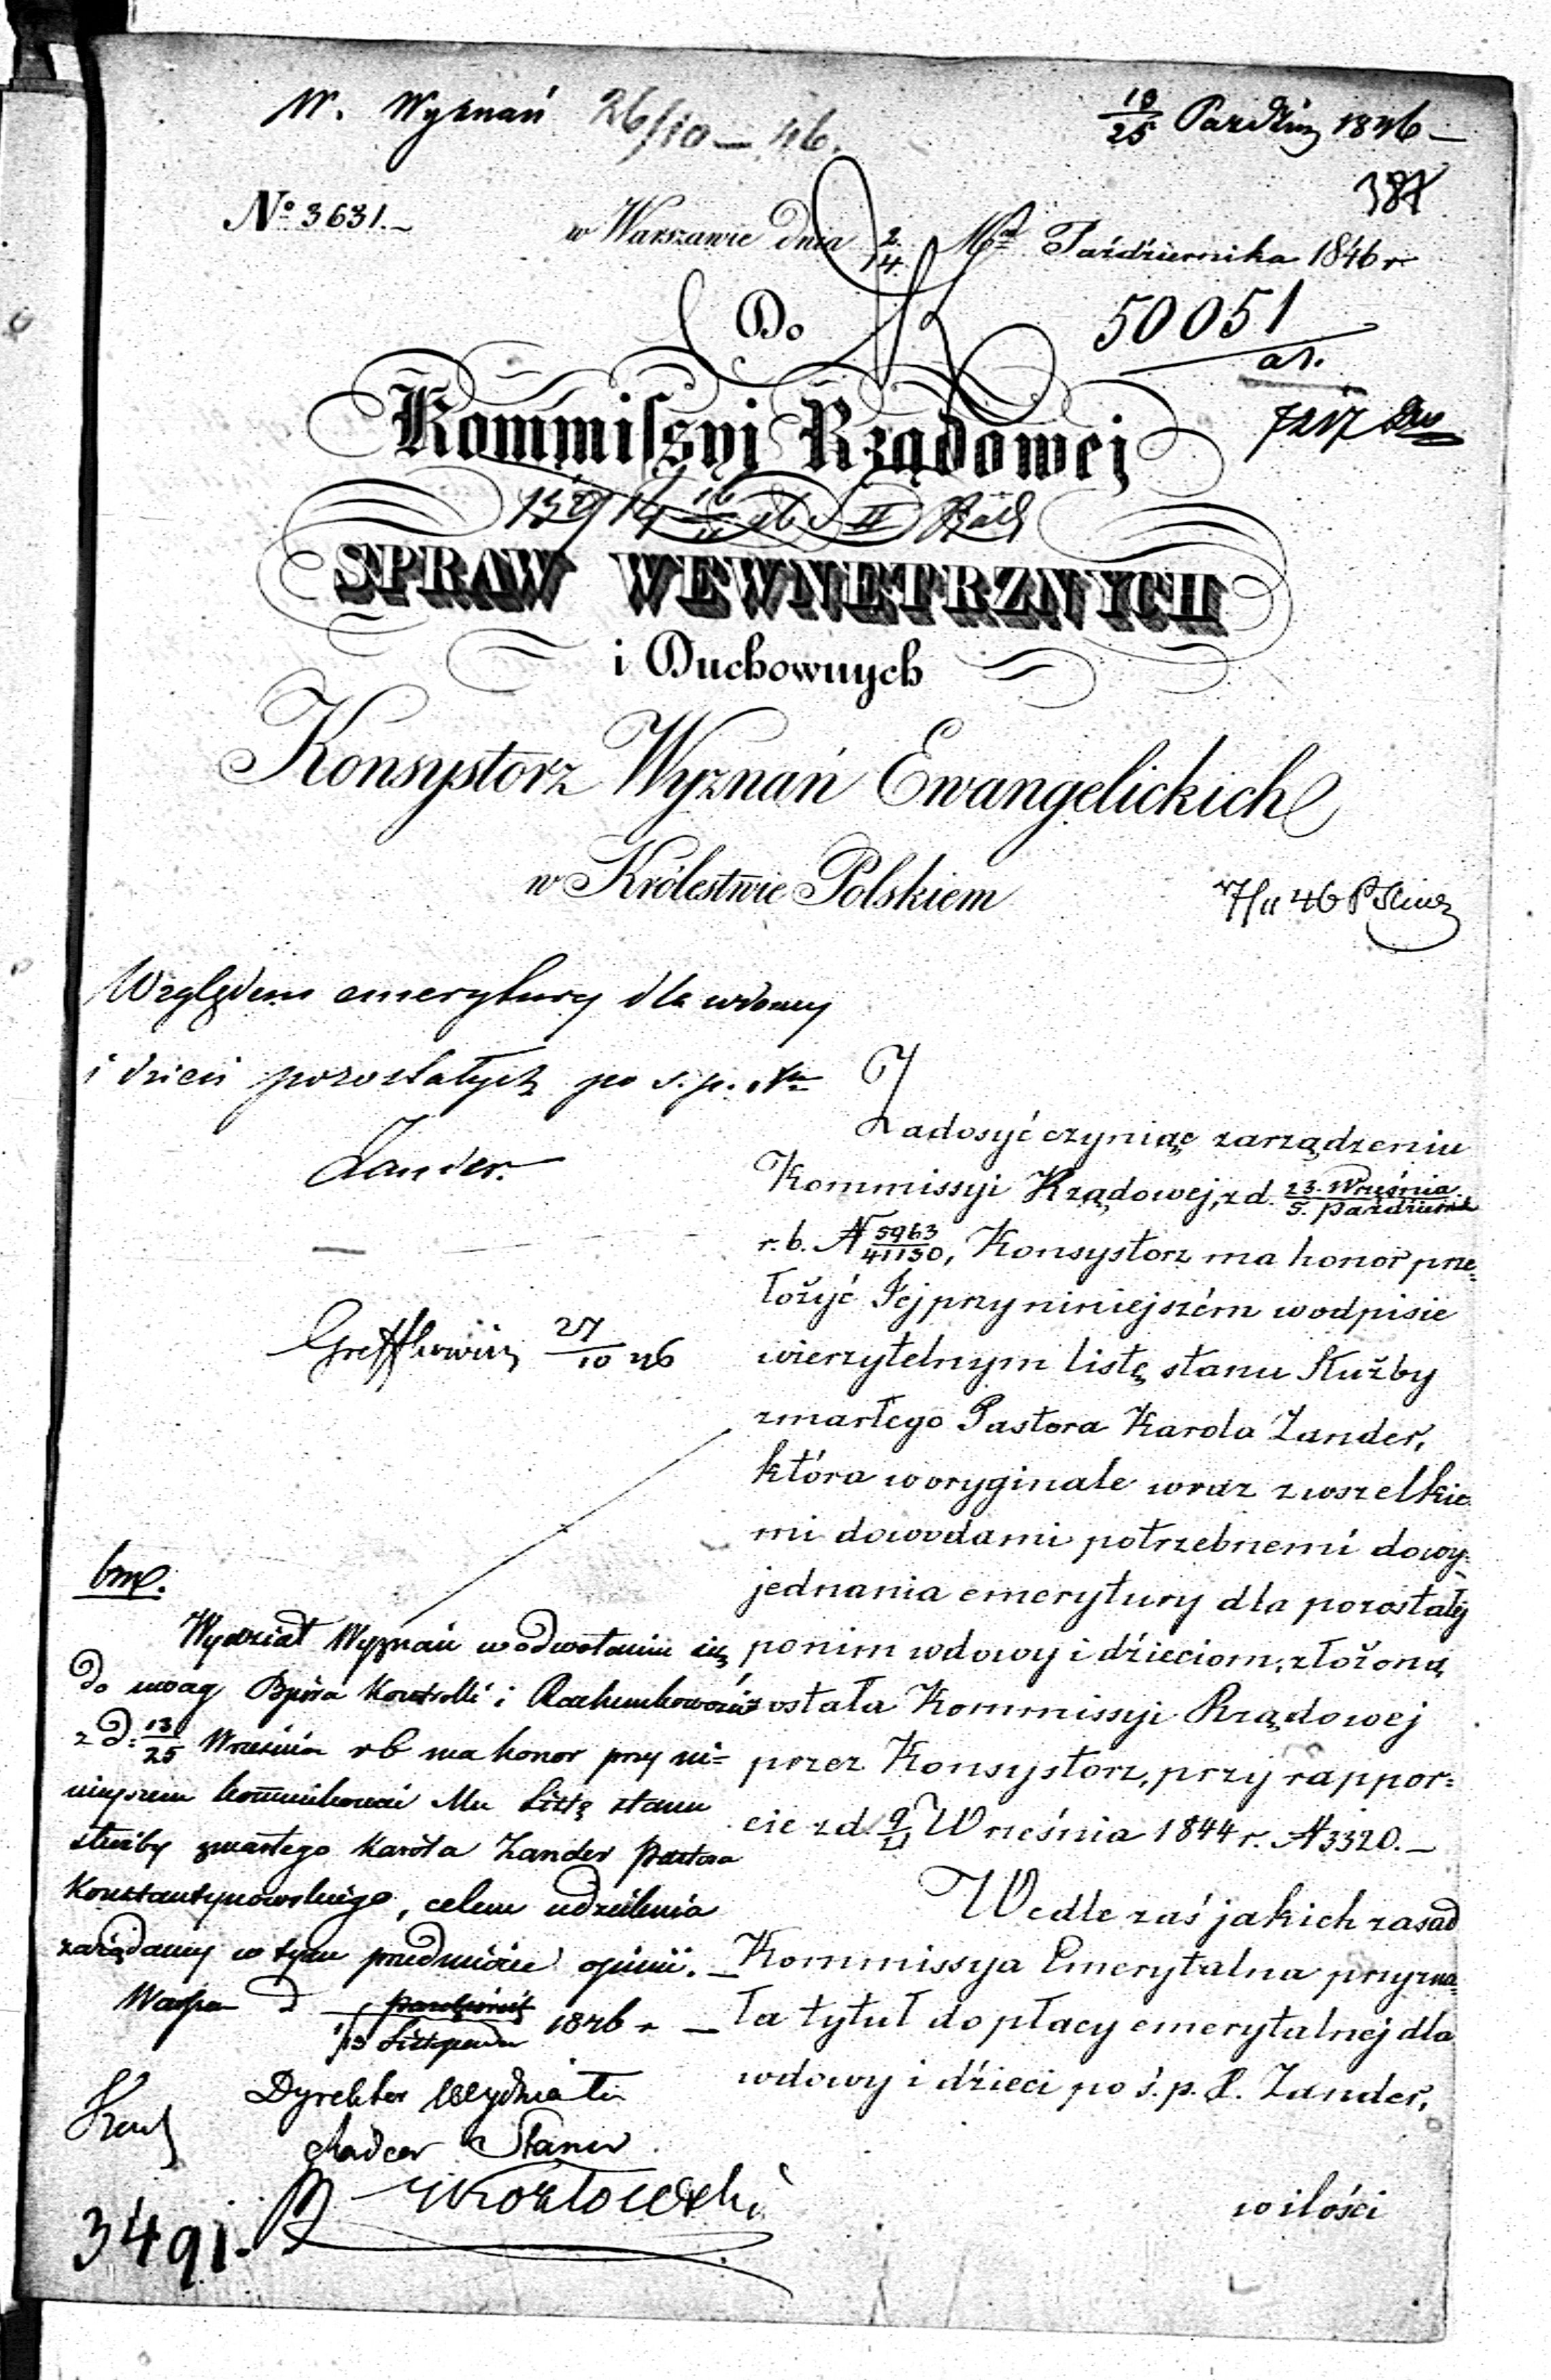 W. Wyznań 26/10 – 46.
13/25 Paździer 1846 –
387
№ 3631. –
w Warszawie dnia 2/14 Mca Października 1846 r
Do
50051
Kommissyi Rządowej
SPRAW WEWNĘTRZNYCH
i Duchownych
Konsystorz Wyznań Ewangelickich
w Królestwie Polskiem
Względem emerytury dla wdowy
i dzieci pozostałych po ś. p. Xe
Zander.
27/10 46
Zadosyć czyniąc zarządzeniu
Kommissyi Rządowej, z d. 23. Września/5. Październik
r. b. N 5963/41130, Konsystorz ma honor prze=
łożyć Jej przy niniejszém w odpisie
wierzytelnym listę stanu Służby
zmarłego Pastora Karola Zander,
która w oryginale wraz z wszelkie
mi dowodami potrzebnemi do wy=
jednania emerytury dla pozostałej
po nim wdowy i dzieciom, złożoną
została Kommissyi Rządowej
przez Konsystorz, przy rappor=
cie z d. 9/21 Września 1844 r. N 3320. –
Wedle zaś jakich zasad
Kommissya Emerytalna przyzna
ła tytuł do płacy emerytalnej dla
wdowy i dzieci po ś. p. X. Zander,
w ilości
bmp.
Wydział Wyznań w odwołaniu się
do uwag Bióra Kontrolli i Rachunkowości
z d: 13/25 Września r b ma honor przy ni=
niejszem kommunikować Mu Listę stanu
służby zmarłego Karola Zander Pastora
Konstantynowskiego, celem udzielenia
zażądanej w tym przedmiocie opinii. –
Warszawa d 1/13 Listopada 1846 r. –
Dyrektor Wydziału
Radca Stanu
Kozłowski
3491.